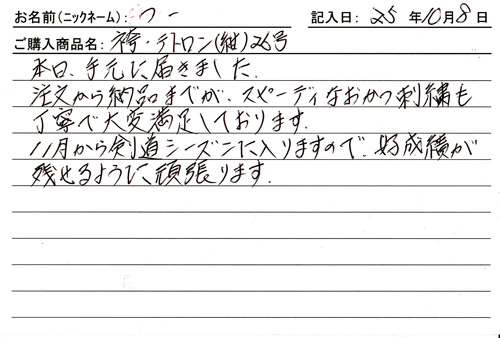 お名前(ニックネーム): つー 記入日: 25 年10月8日
ご購入商品名: 袴・テトロン(紺)26号
本日、手元に届きました。
注文から納品までが、スピーディなおかつ刺繍も
丁寧で大変満足しております。
11月から剣道シーズンに入りますので、好成績が
残せるように頑張ります。